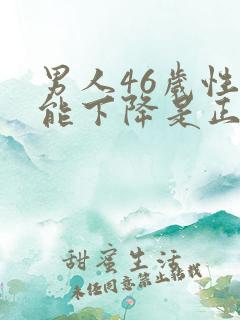 男人46岁性
能下降是正
甜蜜生活
未经同意禁止转载